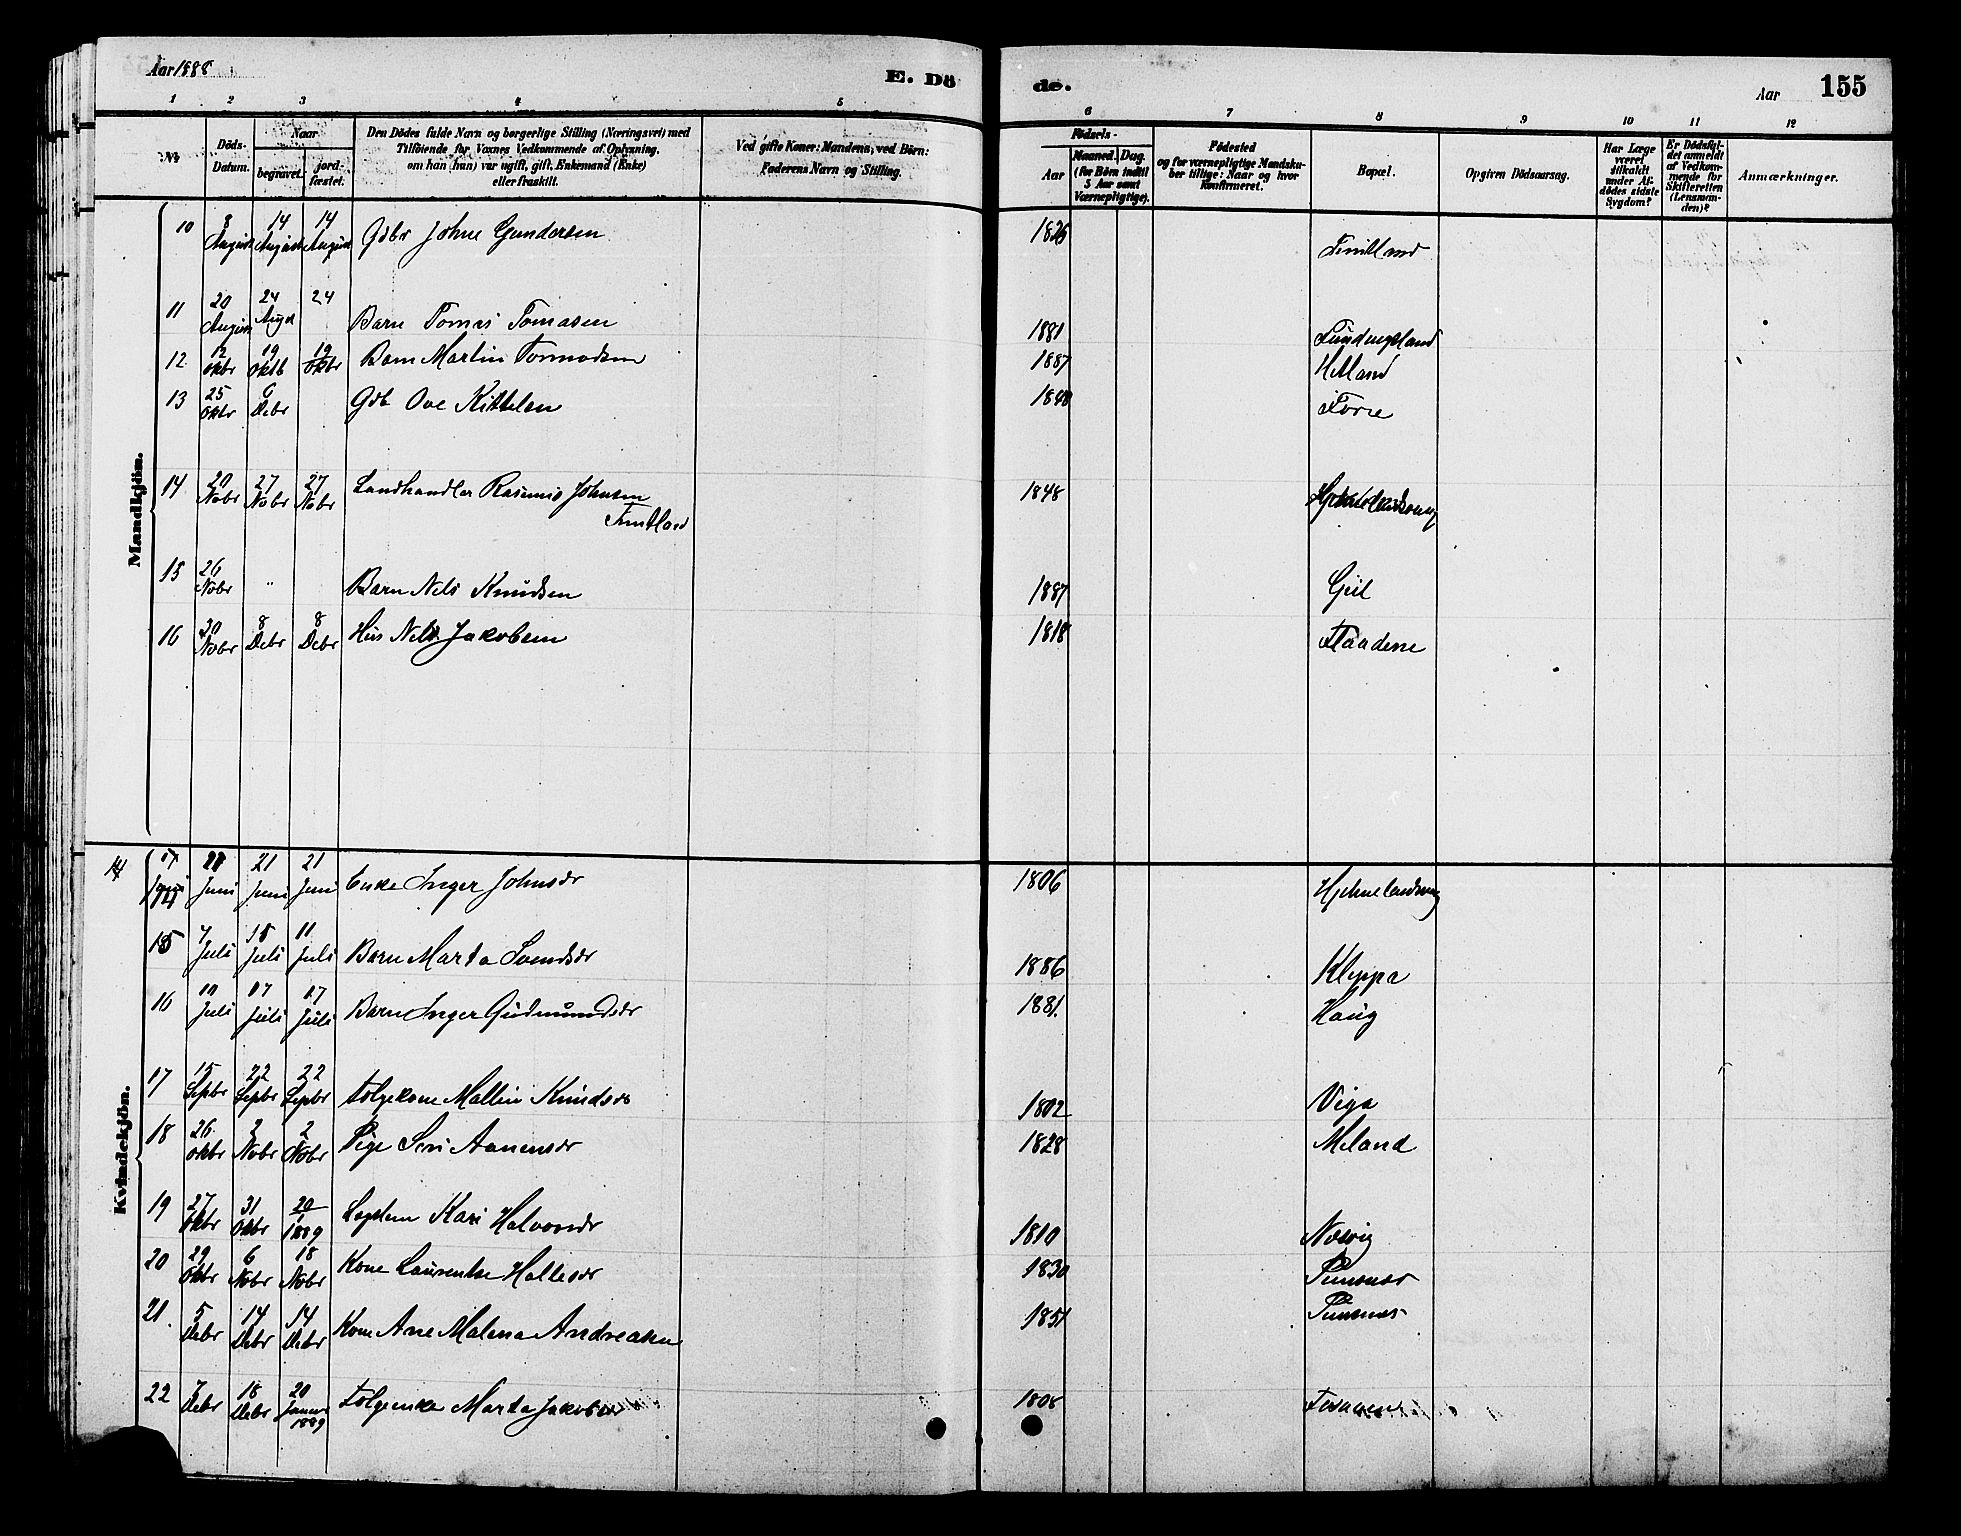 Aar 1888
E. Dö
de.
Aar
155
1 2 3 4 5 6 7 8 9 10 11 12
No
Döds-
Datum.
Naar
begravet.
jord-
fæstet.
Den Dödes fulde Navn og borgerlige Stilling (Næringsvei) med
Tilföiende for Voxnes Vedkommende af Oplysning,
om han (hun) var ugift, gift, Enkemand (Enke)
eller fraskilt.
Ved gifte Koner: Mandens; ved Börn:
Faderens Navn og Stilling.
Födsels-
Aar
Maaned. Dag.
(for Börn indtil
5 Aar samt
Værnepligtige).
Födested
og for værnepligtige Mandsku-
ber tillige: Naar og hvor
Konfirmeret.
Bopæl.
Opgiven Dödsaarsag.
Har Læge
været
tilkaldt
under Af-
dödes sidste
Sygdom?
Er Dödsfal-
det anmeldt
af Vedkom-
mende for
Skifteretten
(Lensman-
den)?
Anmærkninger.
Mandkjön.
10 8 August 14 August 14 August Gdbr Johne Gundersen 1826
11 20 August 24 Augst 24 Barn Tomas Tomasen 1881
12 12 oktbr 19 oktb 19 oktbr Barn Martin Tormodsen 1887 Hetland
13 25 oktbr 6 Debr Gdb Ove Kittelsen Forre
14 20 Nobr 27 Nobr 27 Nobr Landhandler Rasmus Johnsen 1848
15 26 Nobr " Barn Nels Knudsen 1887 Geil
16 30 Nobr 8 Debr 8 Debr Hus Nels Jakobsen 1818 Flaadene
Kvindekjön.
14 Juni 21 Juni 21 Juni Enke Inger Johnsdr 1806 Hjelmelandsvåg
15 7 Juli 15 Juli 11 Juli Barn Marta Svendsdr 1886 Kleppa
16 10 Juli 17 Juli 17 Juli Barn Inger Gudmundsdr 1881. Haug
17 15 Sepbr 22 Sepbr 22 Sepbr Folgekone Mallin Knudsdr 1802 Viga
18 26 oktbr 2 Nobr 2 Nobr Pige Seri Aanensdr 1828 Meland
19 27 oktbr 31 oktbr 20/1 1889 Lægdem Kari Halvorsdr 1810 Nesvig
20 29 oktbr 6 Nobr 18 Nobr Kone Laurentse Hallesdr 1830 Pundsnes
21. 5 Debr 14 Debr 14 Debr Kone Ane Malena Andreasen 1851 Pundsnes
22 7 Debr 18 Debr 20 Januar 1889 Folgeenke Marta Jakobsdr 1808